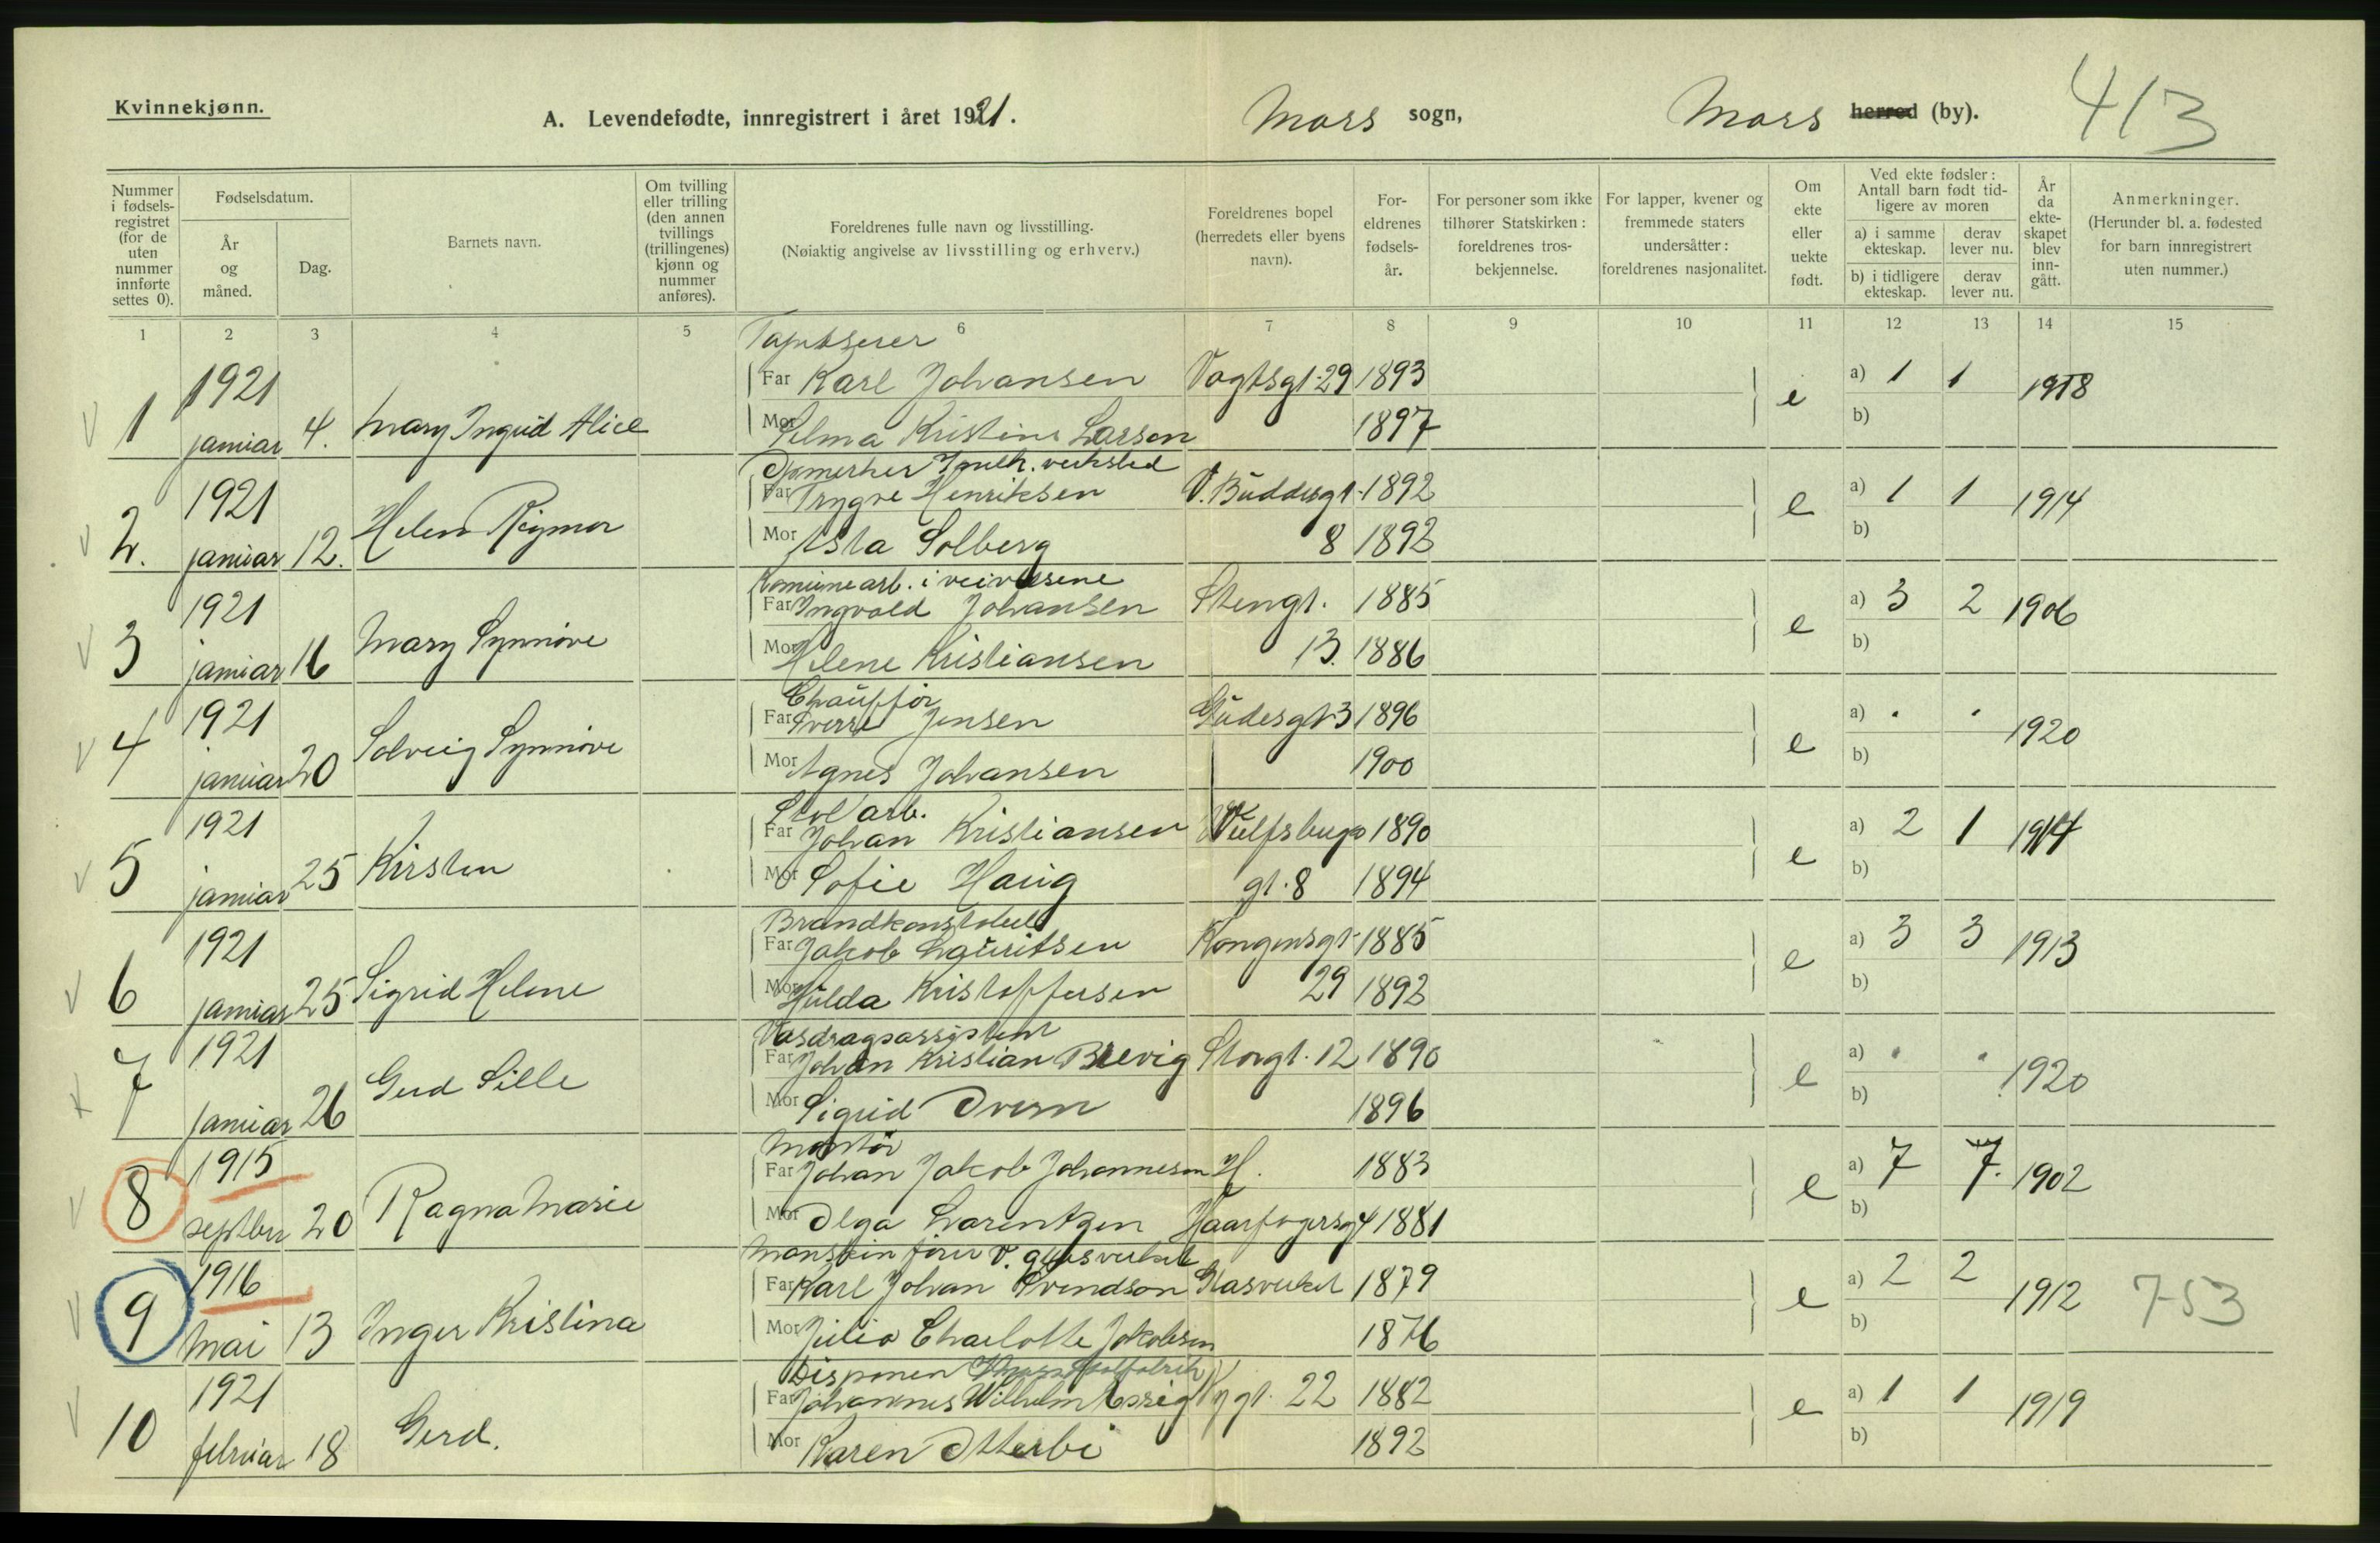 Kvinnekjønn.
A. Levendefødte, innregistrert i året 1921.
Moss sogn,
Moss herred (by).
413
Nummer i fødselsregistret (for de uten nummer innførte settes 0).
Fødselsdatum.
År og måned.
Dag.
Barnets navn.
Om tvilling eller trilling (den annen tvillings (trillingenes) kjønn og nummer anføres).
Foreldrenes fulle navn og livsstilling.
(Nøiaktig angivelse av livsstilling og erhverv.)
Foreldrenes bopel (herredets eller byens navn).
Foreldrenes fødselsår.
For personer som ikke tilhører Statskirken: foreldrenes trosbekjennelse.
For lapper, kvener og fremmede staters undersåtter: foreldrenes nasjonalitet.
Om ekte eller uekte født.
Ved ekte fødsler: Antall barn født tidligere av moren
a) i samme ekteskap.
derav lever nu.
b) i tidligere ekteskap.
derav lever nu.
År da ekteskapet blev inngått.
Anmerkninger.
(Herunder bl. a. fødested for barn innregistrert uten nummer.)
1 2 3 4 5 6 7 8 9 10 11 12 13 14 15
Tapetserer
1921 Far Karl Johansen Vogtsgt. 29 1893 e a) 1 1 1918
1 januar 4. Mary Ingrid Alice Mor Selma Kristine Larsen 1897 b)
1921 Far Trygve Henriksen V. Buddesgt. 1892 e a) 1 1 1914
2. januar 12. Helen Reymor Mor Asta Solberg 8 1893 b)
Komunearb. i veivesene
1921 Far Ingvald Johansen Stengt. 1885 e a) 3 2 1906
3 januar 16 Mary Synnøve Mor Helene Kristiansen 13. 1886 b)
Chauffør
1921 Far Sverre Jensen Gudesgt 3 1896 e a) . . 1920
4 januar 20 Solveig Synnøve Mor Agnes Johansen 1900 b)
Stol arb.
1921 Far Johan Kristiansen Wulfsbergs 1890 e a) 2 1 1914
5 januar 25 Kirsten Mor Sofie Haug gt. 8 1894 b)
Brandkonstabel
1921 Far Jakob Lauritsen Kongensgt. 1885 e a) 3 3 1913
6 januar 25 Sigrid Helene Mor Hulda Kristoffersen 29 1893 b)
Vasdragsassistent
1921 Far Johan Kristian Brevig Storgt. 12 1890 e a) . . 1920
7 januar 26 Gud Sille Mor Sigrid 1896 b)
Montør
1915 Far Johan Jakob Johannesen H. 1883 e a) 7 7. 1902
8 septber 20 Ragna Marie Mor Olga Lorentzen Haarfagersgt 1881 b)
1916 Far Karl Johan Svendson Glasverket 1879 e a) 2 2 1912 753
9 mai 13 Inger Kristina Mor Julia Charlotte Jakobsen 1876 b)
Disponen
1921 Far Johannes Wilhelm Essig gt. 22 1882 e a) 1 1 1919
10 februar 18 Gerd. Mor Karen Otterbi 1892 b)